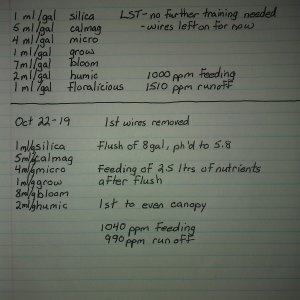 1 ml/gal silica LST - no further training needed
5 ml/gal calmag - wires left on for now
4 ml/gal micro
1 ml/gal grow
7 ml/gal bloom
2 ml/gal humic 1000 ppm feeding
1 ml/gal floralicious 1510 ppm runoff
Oct 22-19 1st wires removed
1 ml/g silica Flush of 8 gal, ph'd to 5.8
5 ml/g calmag
4 ml/g micro Feeding of 25 ltrs of nutrients
1 ml/g grow after flush
8 ml/g bloom
2 ml/g humic 1st to even canopy
1040 ppm feeding
990 ppm runoff